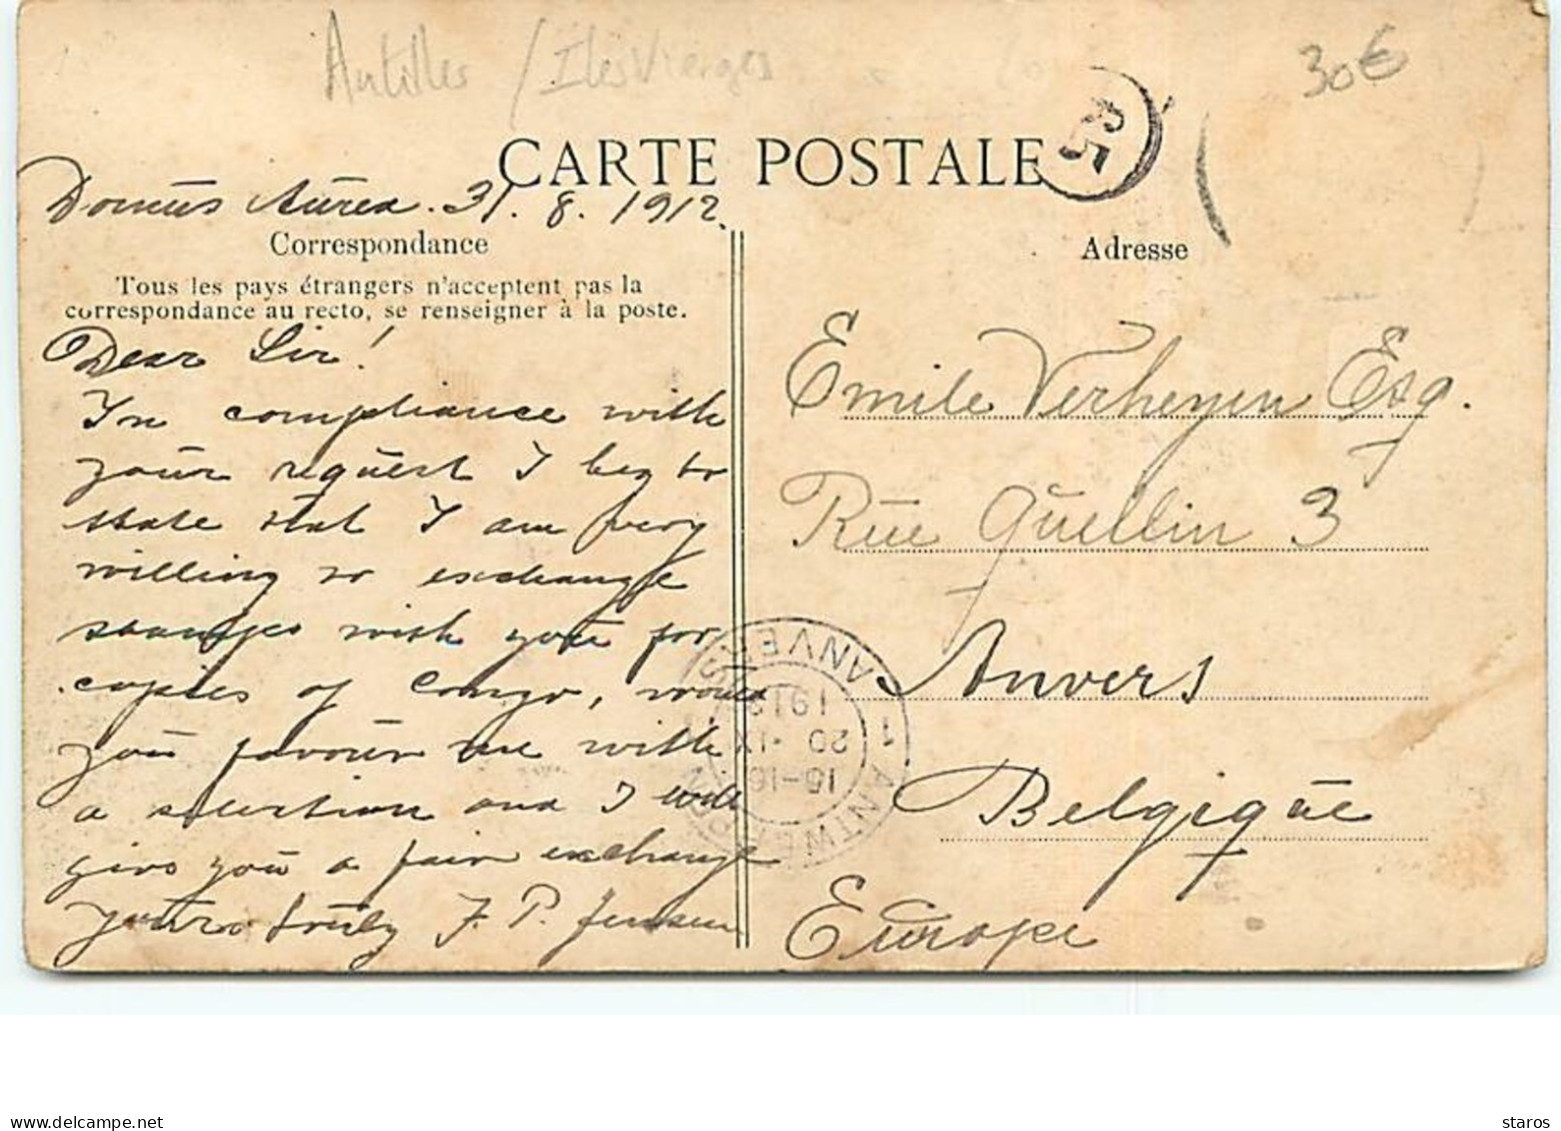 Antilles / Iles Vierges
30€
CARTE POSTALE
85
Domus Aurea. 31. 8. 1912.
Correspondance
Tous les pays étrangers n'acceptent pas la
correspondance au recto, se renseigner à la poste.
Dear Sir!
In compliance with
your request I beg to
state that I am very
willing to exchange
stamps with you for
copies of Congo, would
you favour me with
a selection and I will
give you a fair exchange
Yours truly J. P. Jensen
Adresse
Emile Verheyen Esq.
Rue Quellin 3
Anvers
Belgique
Europe
1 ANVERS
1912
20 · IX
15-16
ANTWERPEN
www.delcampe.net
staros